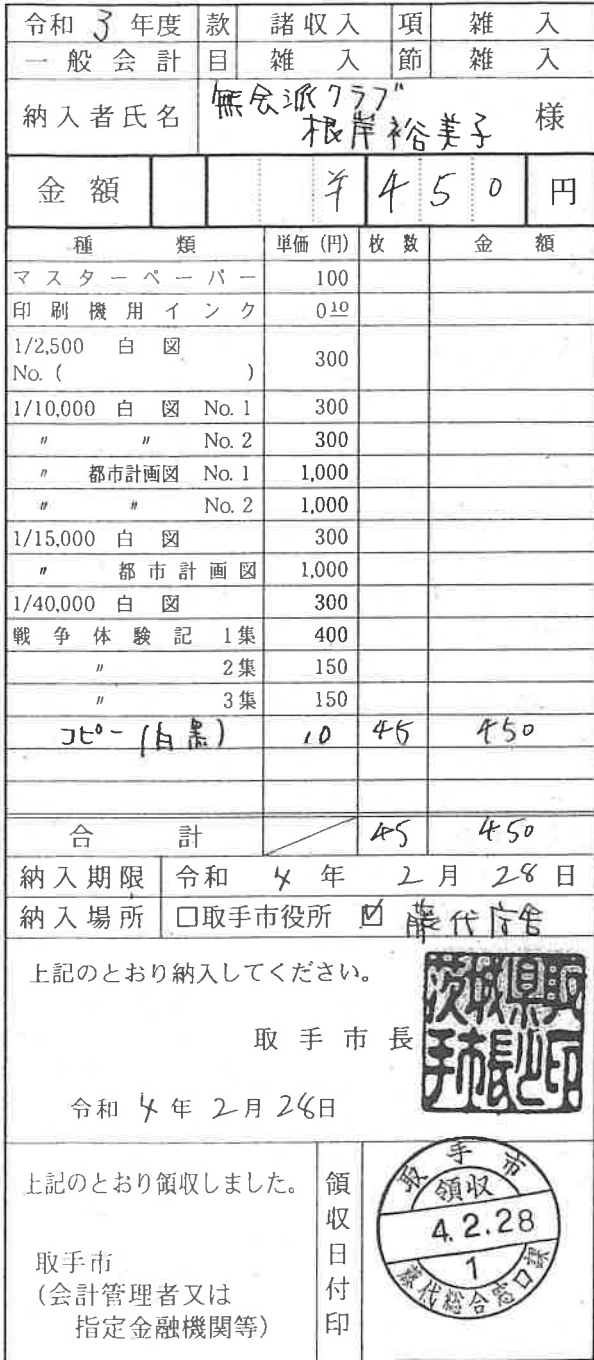 令和 3 年度 款 諸収入 項 雑入
一般会計 目 雑入 節 雑入
納入者氏名 無会派クラブ 根岸裕美子 様
金額 ¥450 円
種類 単価(円) 枚数 金額
マスターペーパー 100
印刷機用インク 010
1/2,500 白図 No.( ) 300
1/10,000 白図 No. 1 300
〃 〃 No. 2 300
〃 都市計画図 No. 1 1,000
〃 〃 No. 2 1,000
1/15,000 白図 300
〃 都市計画図 1,000
1/40,000 白図 300
戦争体験記 1集 400
〃 2集 150
〃 3集 150
コピー(白黒) 10 45 450
合計 45 450
納入期限 令和 4 年 2 月 28 日
納入場所 □取手市役所 ☑ 藤代庁舎
上記のとおり納入してください。
取手市長
茨城県取手市長之印
令和 4 年 2 月 28日
上記のとおり領収しました。
取手市
(会計管理者又は
指定金融機関等)
領収日付印
取手市
領収
4.2.28
1
藤代総合窓口課